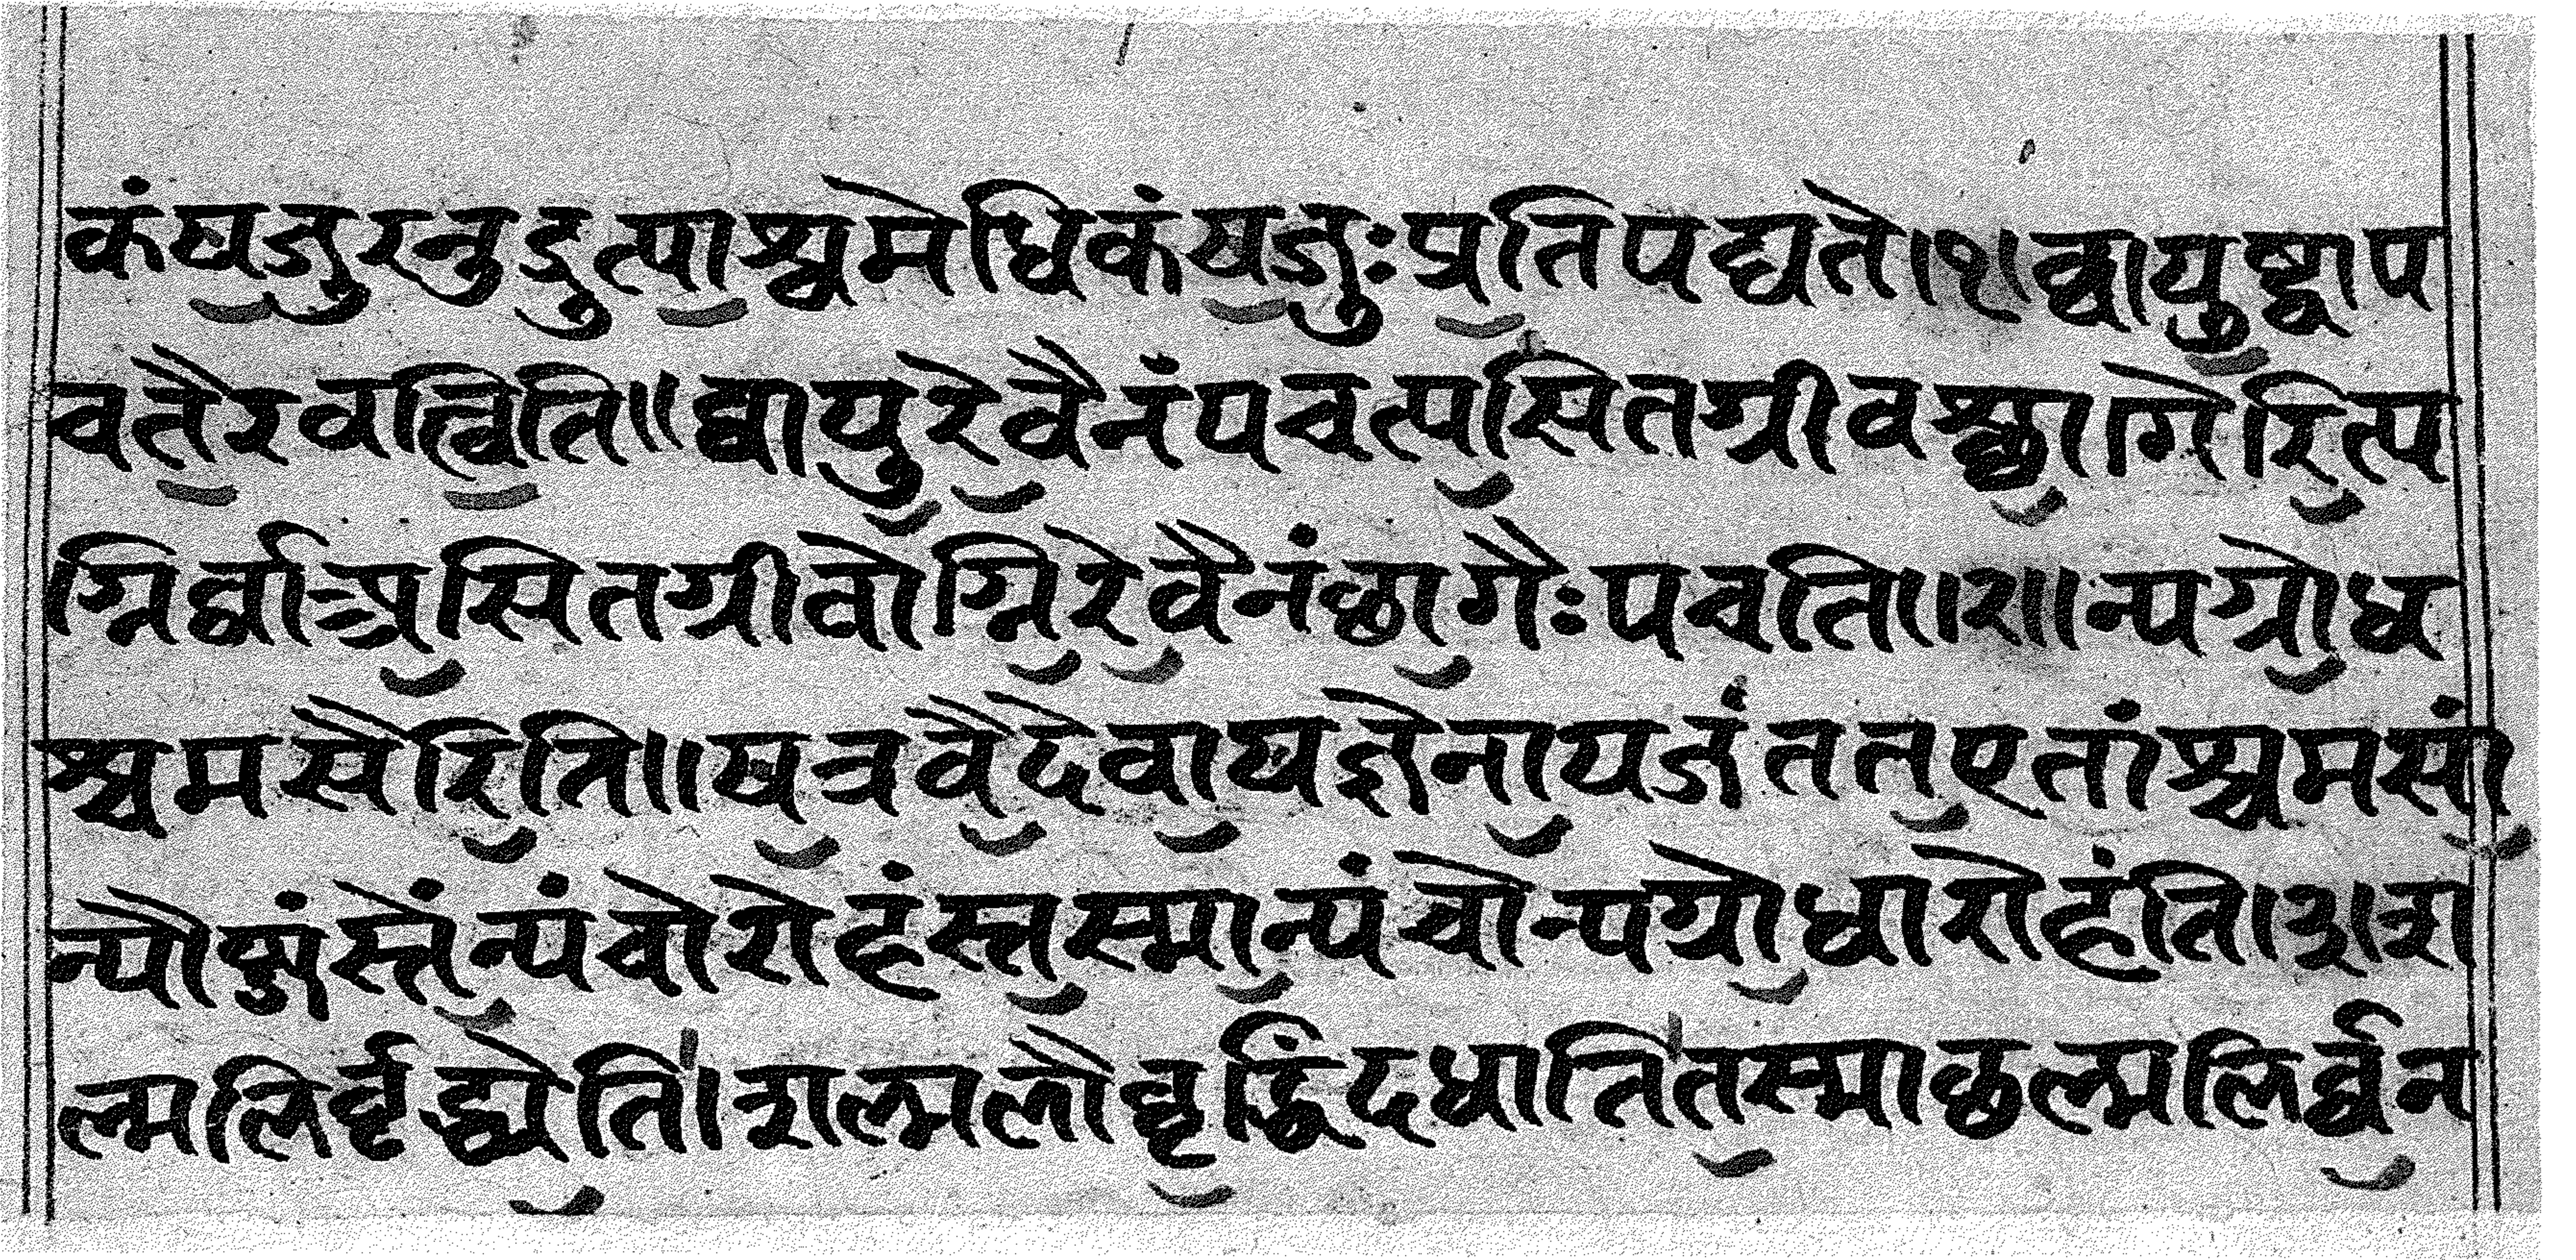 कं यजुरनुद्रुत्याश्वमेधिकं यजुः प्रतिपद्यते।१।वायुष्ट्वाप
चतैरवत्विति॥ वायुरेवैनं पचत्यसितग्रीवश्छागैरित्य
ग्निर्वा असितग्रीवोग्निरेवैनं छागैः पचति॥२॥न्यग्रोध
श्चमसैरिति॥ यत्र वै देवा यज्ञेनायजंत त एतांश्चमसां
न्यौब्जंस्ते न्यंचो रोहंस्तस्मान्यंचो न्यग्रोधा रोहंति।३।श
ल्मलिर्वृद्ध्येति। शल्मलौ वृद्धिं दधाति तस्माछल्मलिर्वन